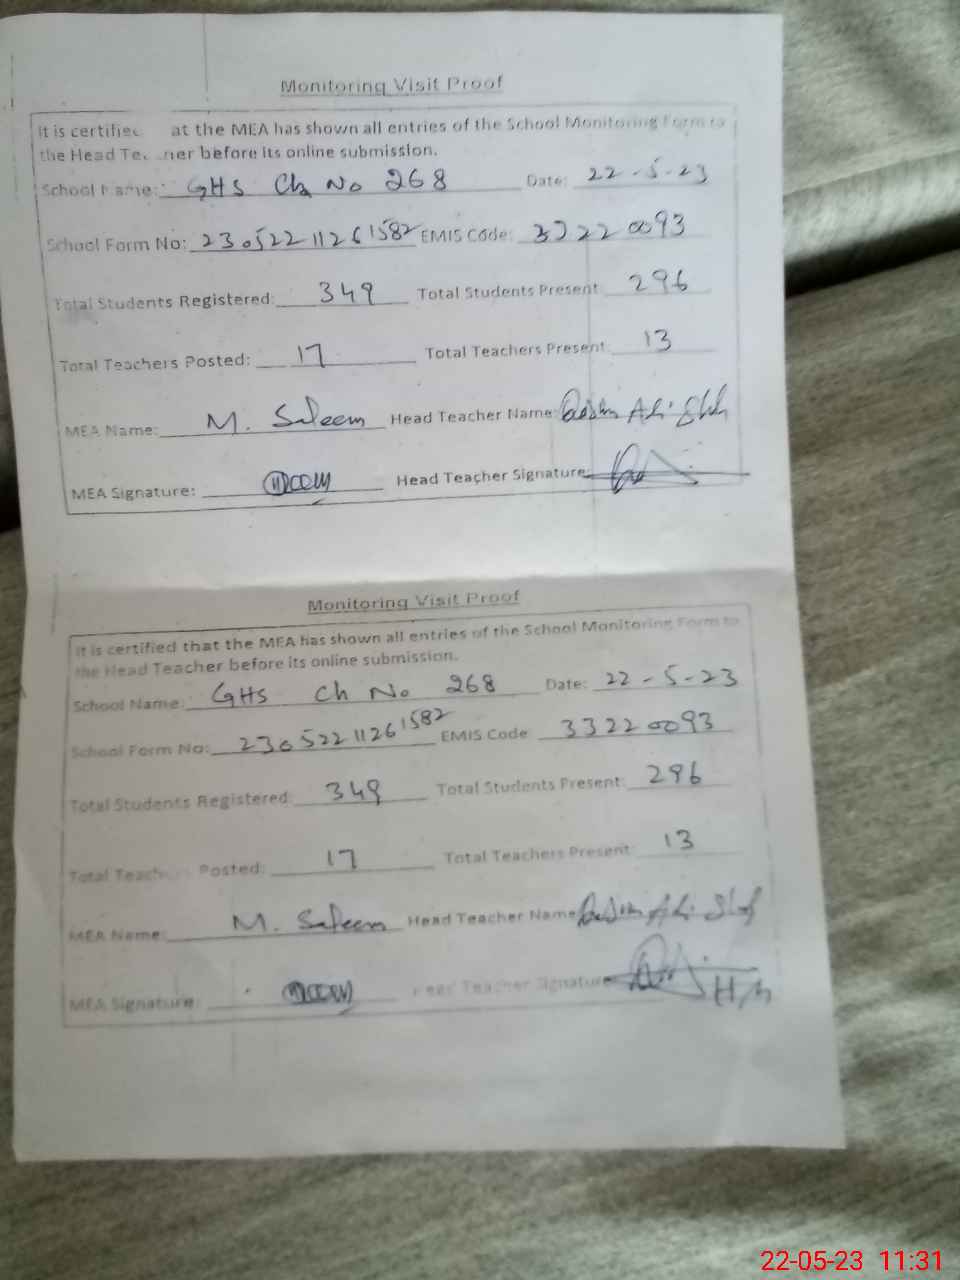 Monitoring Visit Proof
It is certified at the MEA has shown all entries of the School Monitoring Form to
the Head Teacher before its online submission.
School Name: GHS Ch No 268 Date: 22-5-23
School Form No: 23052211261582 EMIS Code: 33220093
Total Students Registered: 349 Total Students Present: 296
Total Teachers Posted: 17 Total Teachers Present: 13
MEA Name: M. Saleem Head Teacher Name: Ali
MEA Signature: Head Teacher Signature:
Monitoring Visit Proof
It is certified that the MEA has shown all entries of the School Monitoring Form to
the Head Teacher before its online submission.
School Name: GHS Ch No 268 Date: 22-5-23
School Form No: 23052211261582 EMIS Code 33220093
Total Students Registered: 349 Total Students Present: 296
Total Teachers Posted: 17 Total Teachers Present: 13
MEA Name: M. Saleem Head Teacher Name Ali
MEA Signature: Head Teacher Signature H/M
22-05-23 11:31